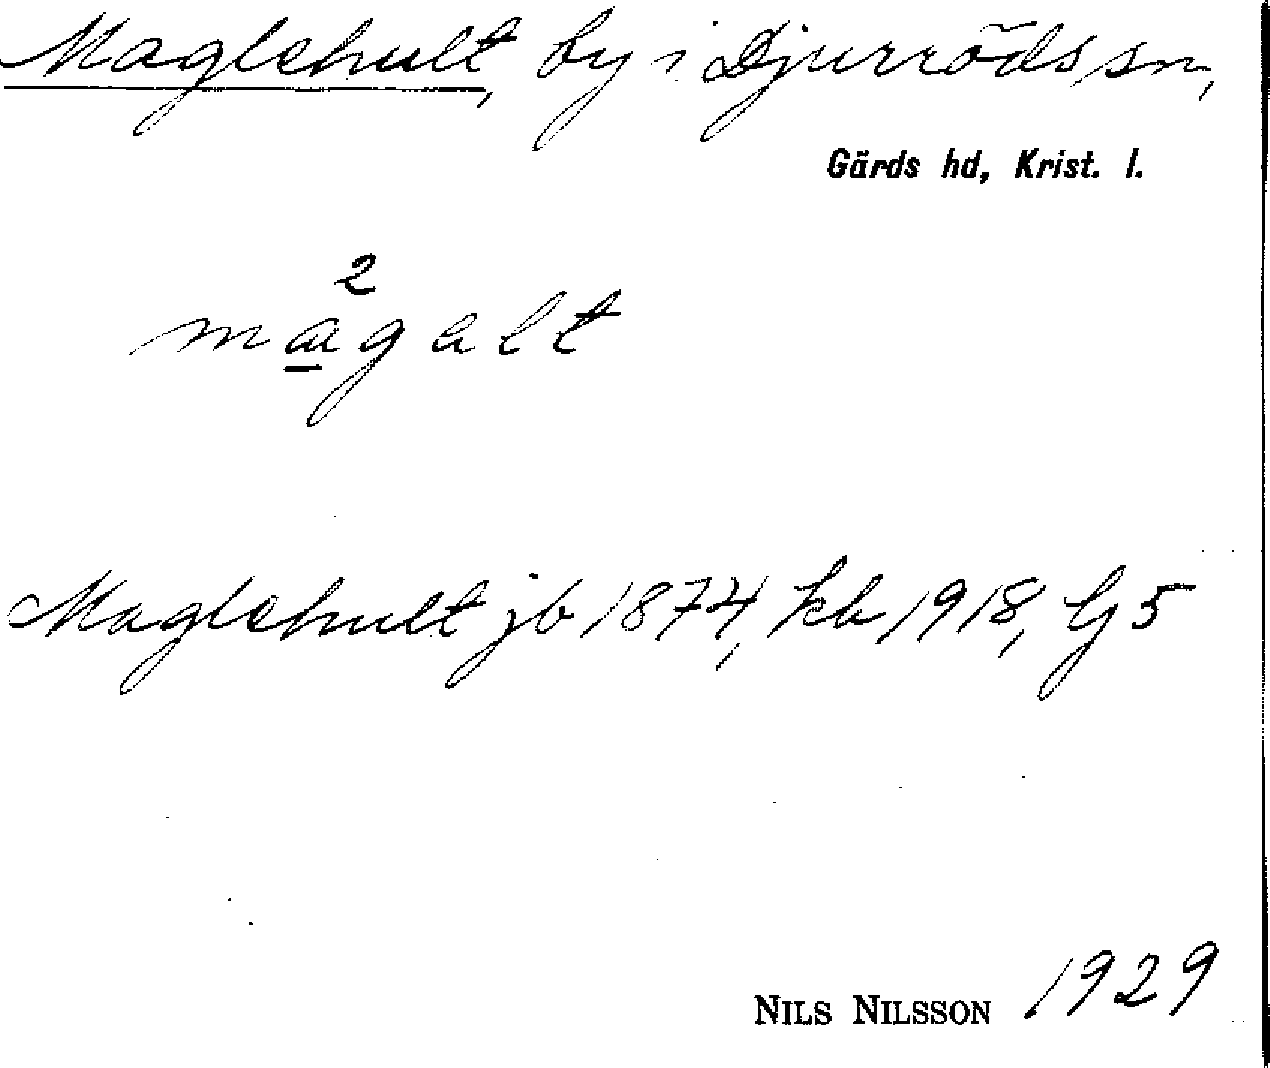 Maglehult, by i Djurröds sn,
Gärds hd, Krist. l.
2
magalt
Maglehult jb 1874, kb 1918, G 5
NILS NILSSON 1929